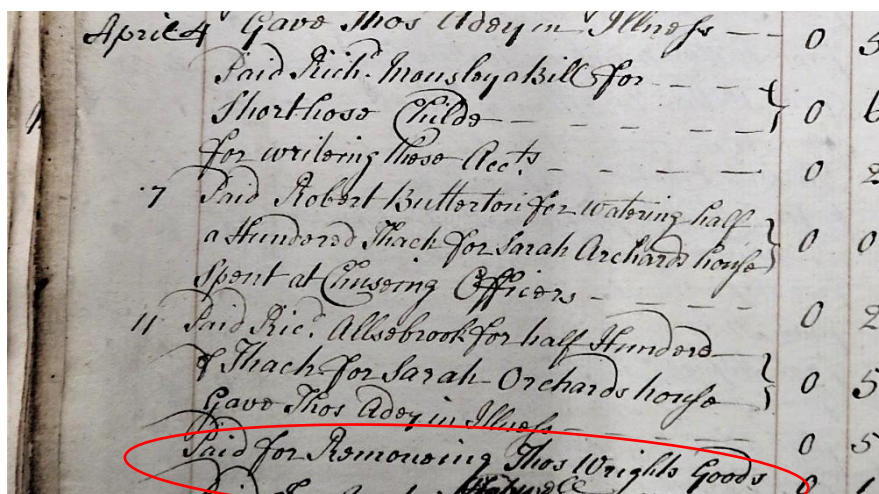 April 4 Gave Thos Adey in Illness - - 0 5
Paid Richd. Mousley a Bill for - - -
Shorthose Childe - - - - - 0 6
for writeing these Acc.ts - - - - 0 2
7 Paid Robert Butterton for watering half
a Hunderd Thach for Sarah Archards house 0 0
Spent at Chuseing Officers - - - - 0 2
11 Paid Ricd. Allsebrook for half Hunderd
of Thach for Sarah Orchards house 0 5
Gave Thos Adey in Illness - - - 0 5
Paid for Removeing Thos Wrights Goods 0 1